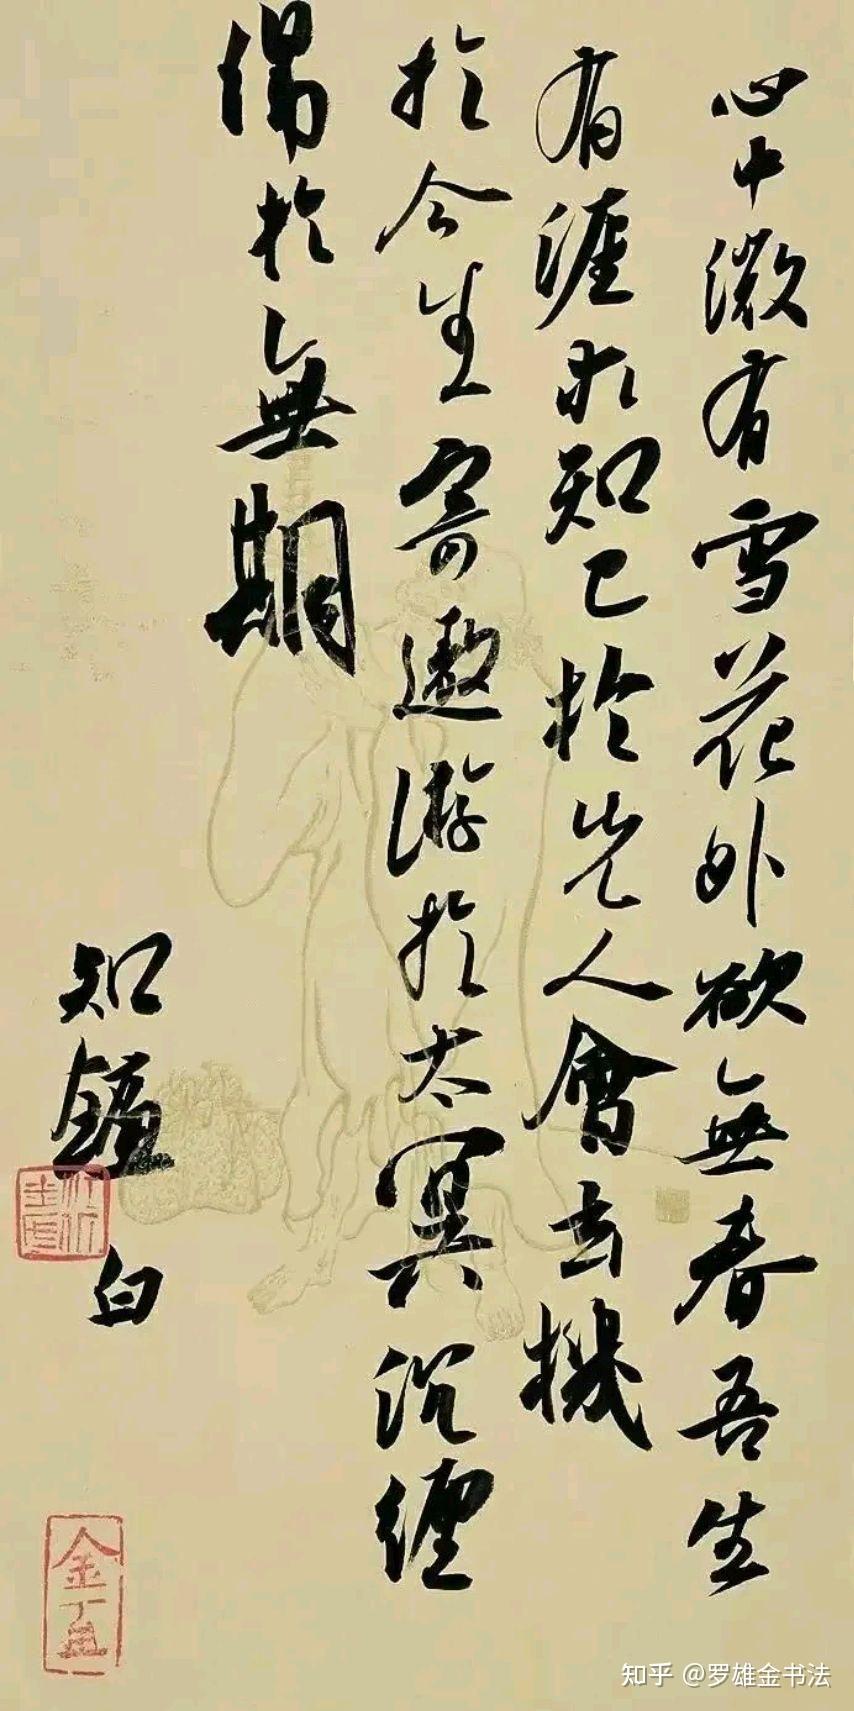 心中澂有雪花外欲無春吾生
有涯求知己於先人會玄機
於今生寄遨游於太冥沉纏
傷於無期
知鐳
白
知乎 @罗雄金书法